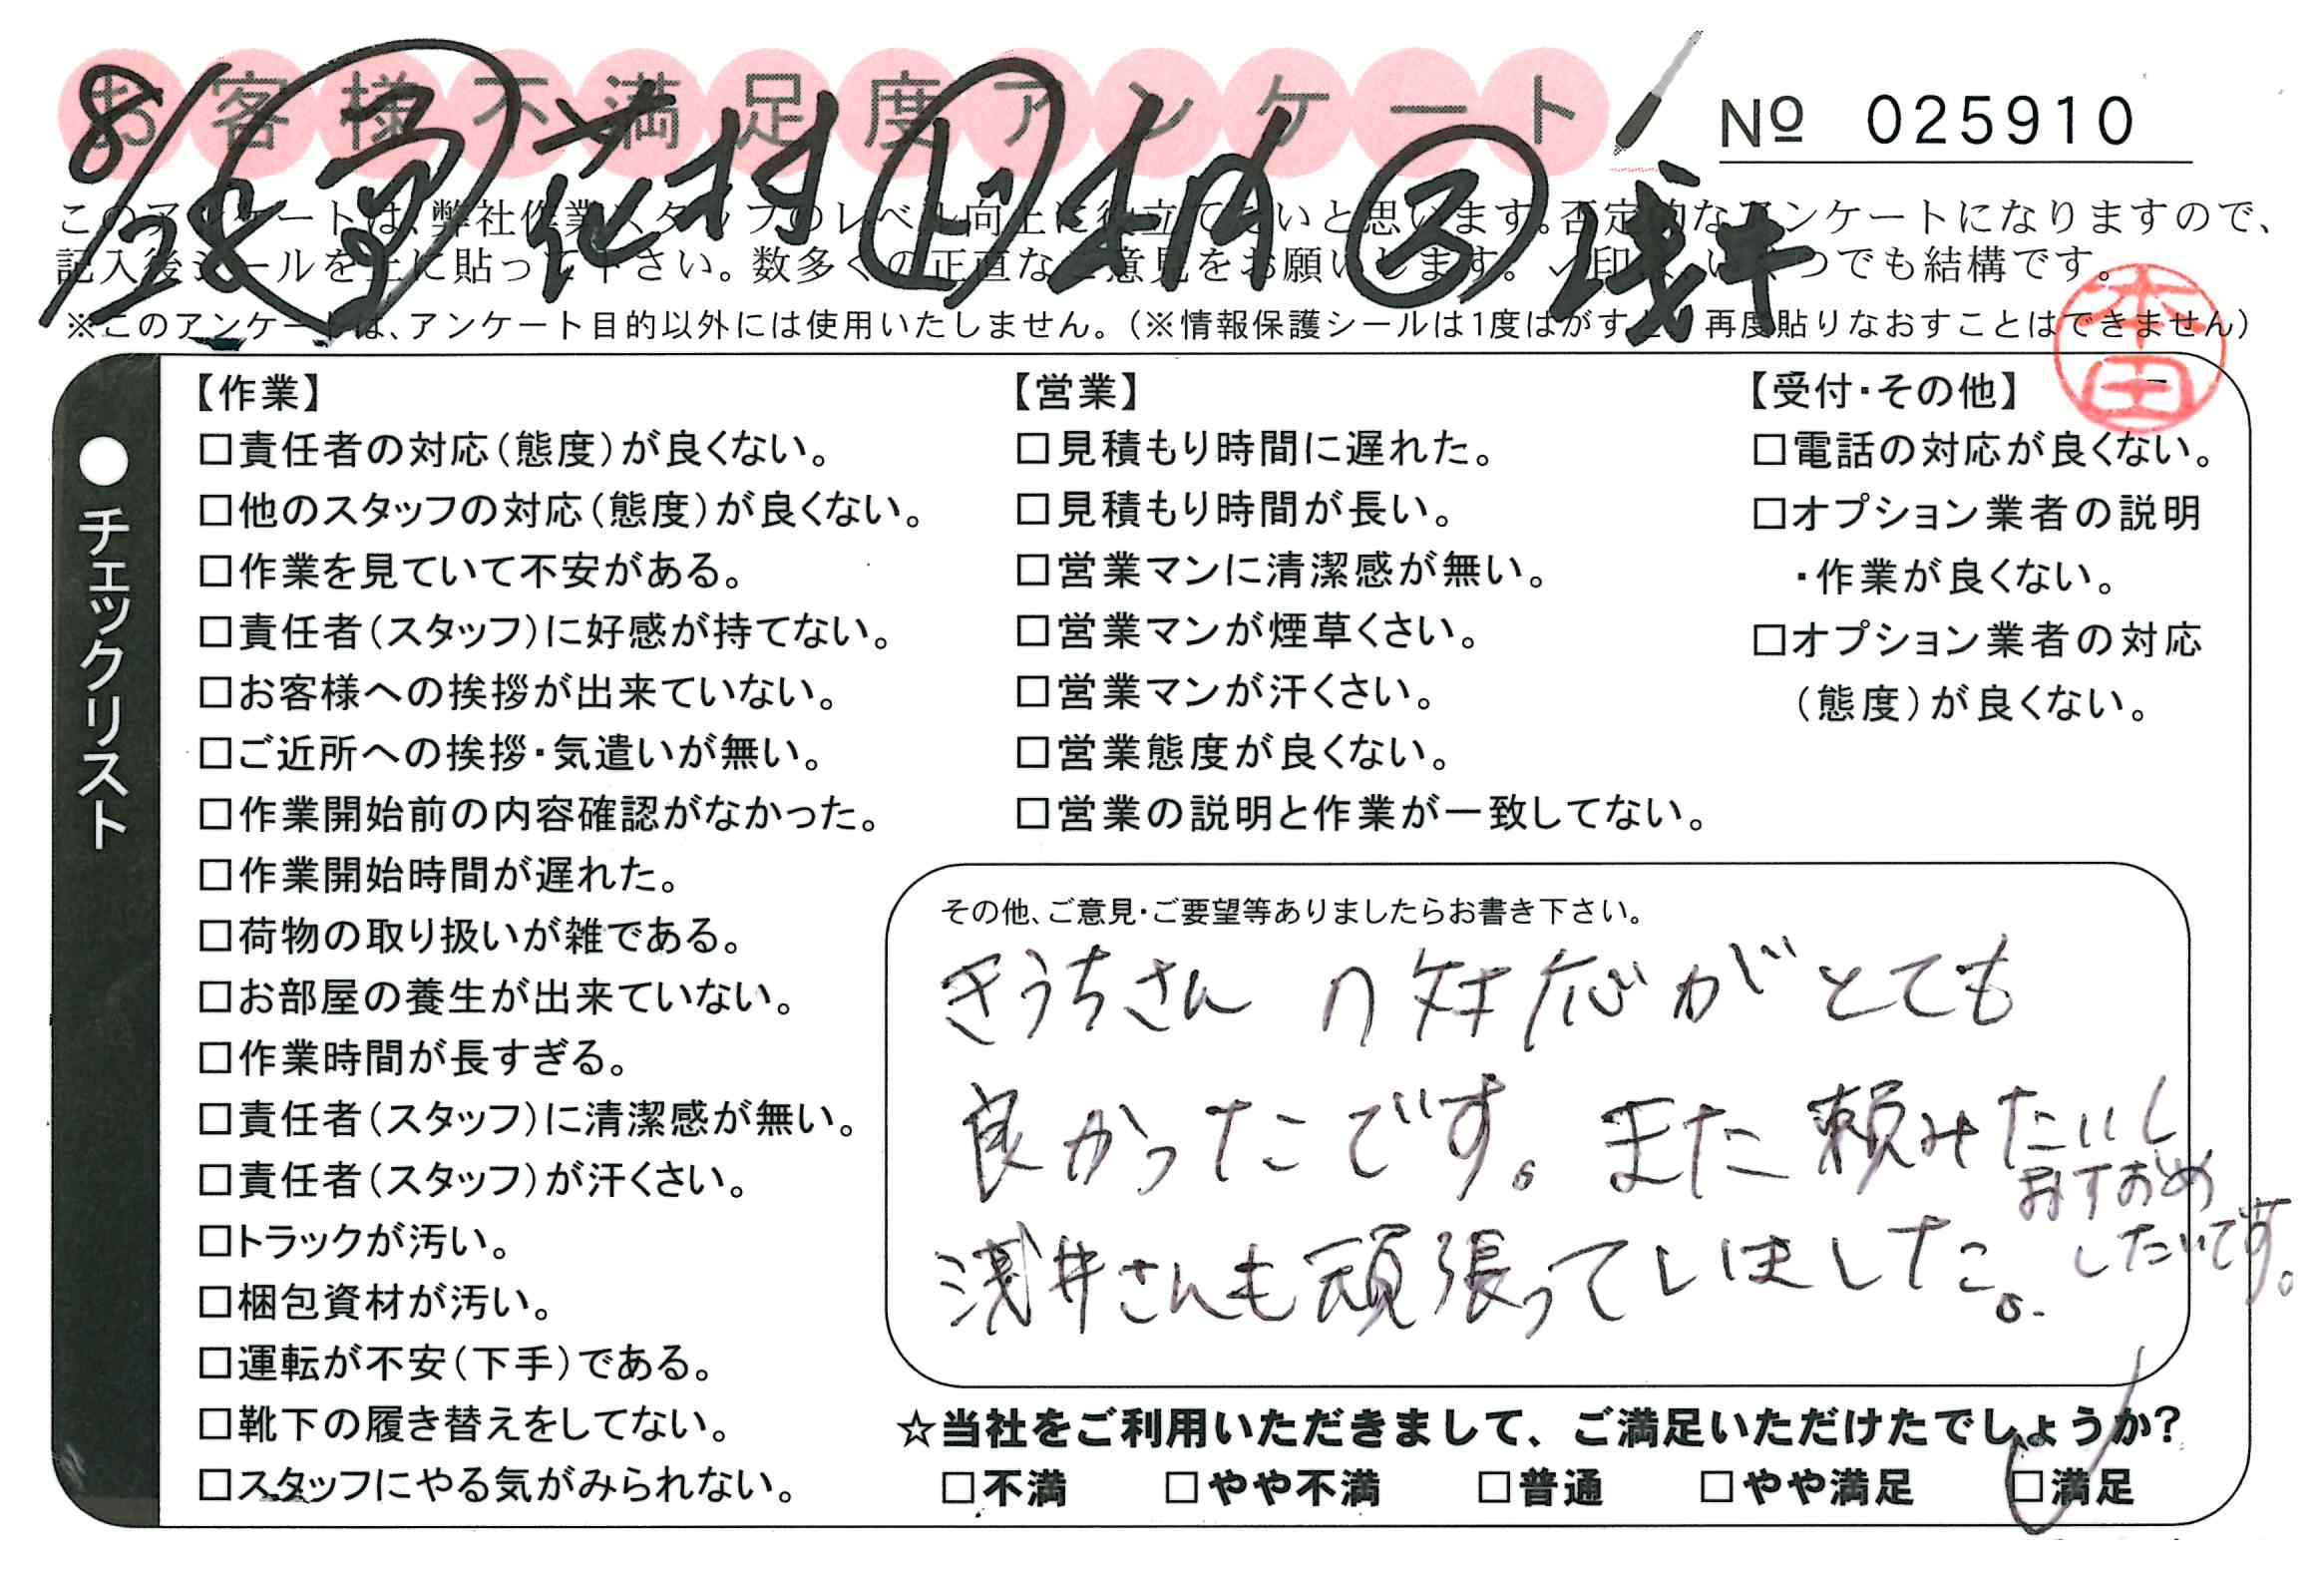 お客様不満足度アンケート
№ 025910
8/28 営 花村 ド 木内 ③ 浅井
このアンケートは、弊社作業スタッフのレベル向上に役立てたいと思います。否定的なアンケートになりますので、
記入後シールを上に貼って下さい。数多くの正直なご意見をお願いします。✓印は、いくつでも結構です。
※このアンケートは、アンケート目的以外には使用いたしません。(※情報保護シールは1度はがすと、再度貼りなおすことはできません)
本田
●チェックリスト
【作業】
□責任者の対応(態度)が良くない。
□他のスタッフの対応(態度)が良くない。
□作業を見ていて不安がある。
□責任者(スタッフ)に好感が持てない。
□お客様への挨拶が出来ていない。
□ご近所への挨拶・気遣いが無い。
□作業開始前の内容確認がなかった。
□作業開始時間が遅れた。
□荷物の取り扱いが雑である。
□お部屋の養生が出来ていない。
□作業時間が長すぎる。
□責任者(スタッフ)に清潔感が無い。
□責任者(スタッフ)が汗くさい。
□トラックが汚い。
□梱包資材が汚い。
□運転が不安(下手)である。
□靴下の履き替えをしてない。
□スタッフにやる気がみられない。
【営業】
□見積もり時間に遅れた。
□見積もり時間が長い。
□営業マンに清潔感が無い。
□営業マンが煙草くさい。
□営業マンが汗くさい。
□営業態度が良くない。
□営業の説明と作業が一致してない。
【受付・その他】
□電話の対応が良くない。
□オプション業者の説明
・作業が良くない。
□オプション業者の対応
(態度)が良くない。
その他、ご意見・ご要望等ありましたらお書き下さい。
きうちさんの対応がとても
良かったです。また頼みたいし
おすすめ
したいです。
浅井さんも頑張っていました。
☆当社をご利用いただきまして、ご満足いただけたでしょうか?
□不満 □やや不満 □普通 □やや満足 ☑満足